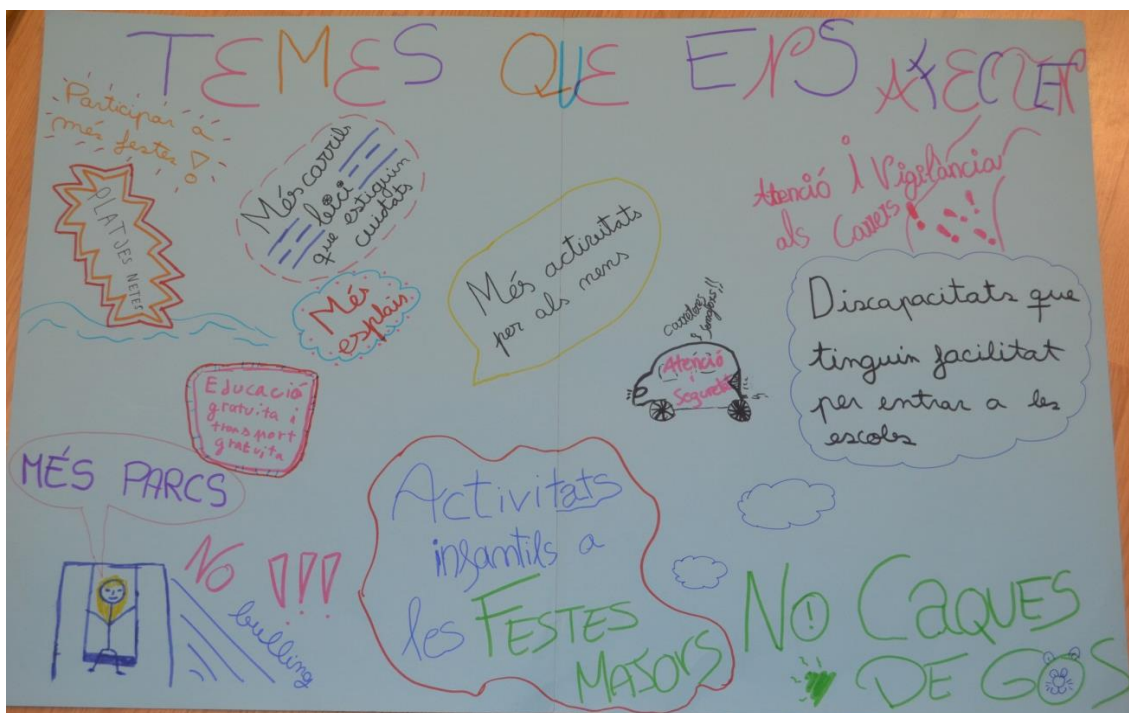 TEMES QUE ENS AFECTEN
Participar a
més festes!
PLATJES NETES
Més carrils
bici
que estiguin
cuidats
Més
esplais
Més activitats
per als nens
Atenció i Vigilància
als Carrers
Carreteres
Atenció
i
Seguretat
Discapacitats que
tinguin facilitat
per entrar a les
escoles
Educació
gratuita i
transport
gratuita
MÉS PARCS
NO !!!
bulling
Activitats
infantils a
les FESTES
MAJORS
NO! CAQUES
DE GOS